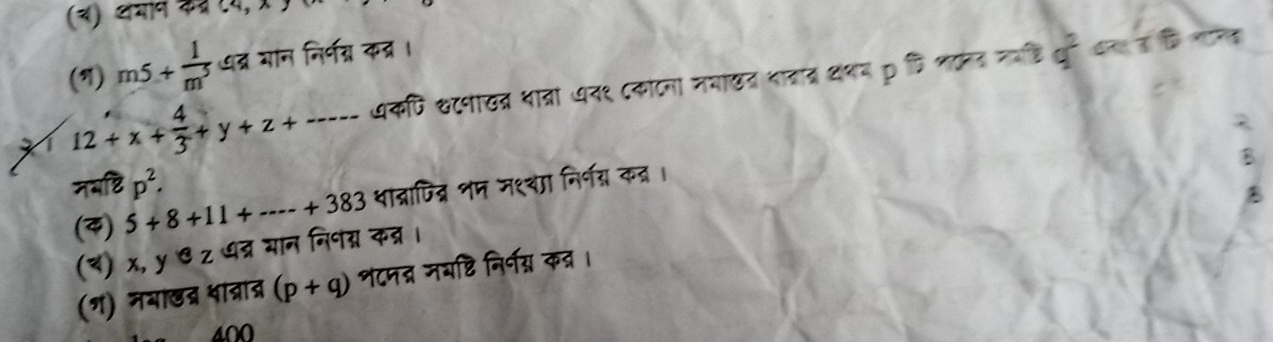 (খ) প্রমাণ কর
(গ) m5 + 1/m⁵ এর মান নির্ণয় কর।
২। 12 + x + 4/3 + y + z + ----- একটি গুণোত্তর ধারা এবং কোনো সমান্তর ধারার প্রথম p টি পদের সমষ্টি q² এবং q টি পদের
সমষ্টি p².
(ক) 5 + 8 +11 + ---- + 383 ধারাটির পদ সংখ্যা নির্ণয় কর।
(খ) x, y ও z এর মান নির্ণয় কর।
(গ) সমান্তর ধারার (p + q) পদের সমষ্টি নির্ণয় কর।
400